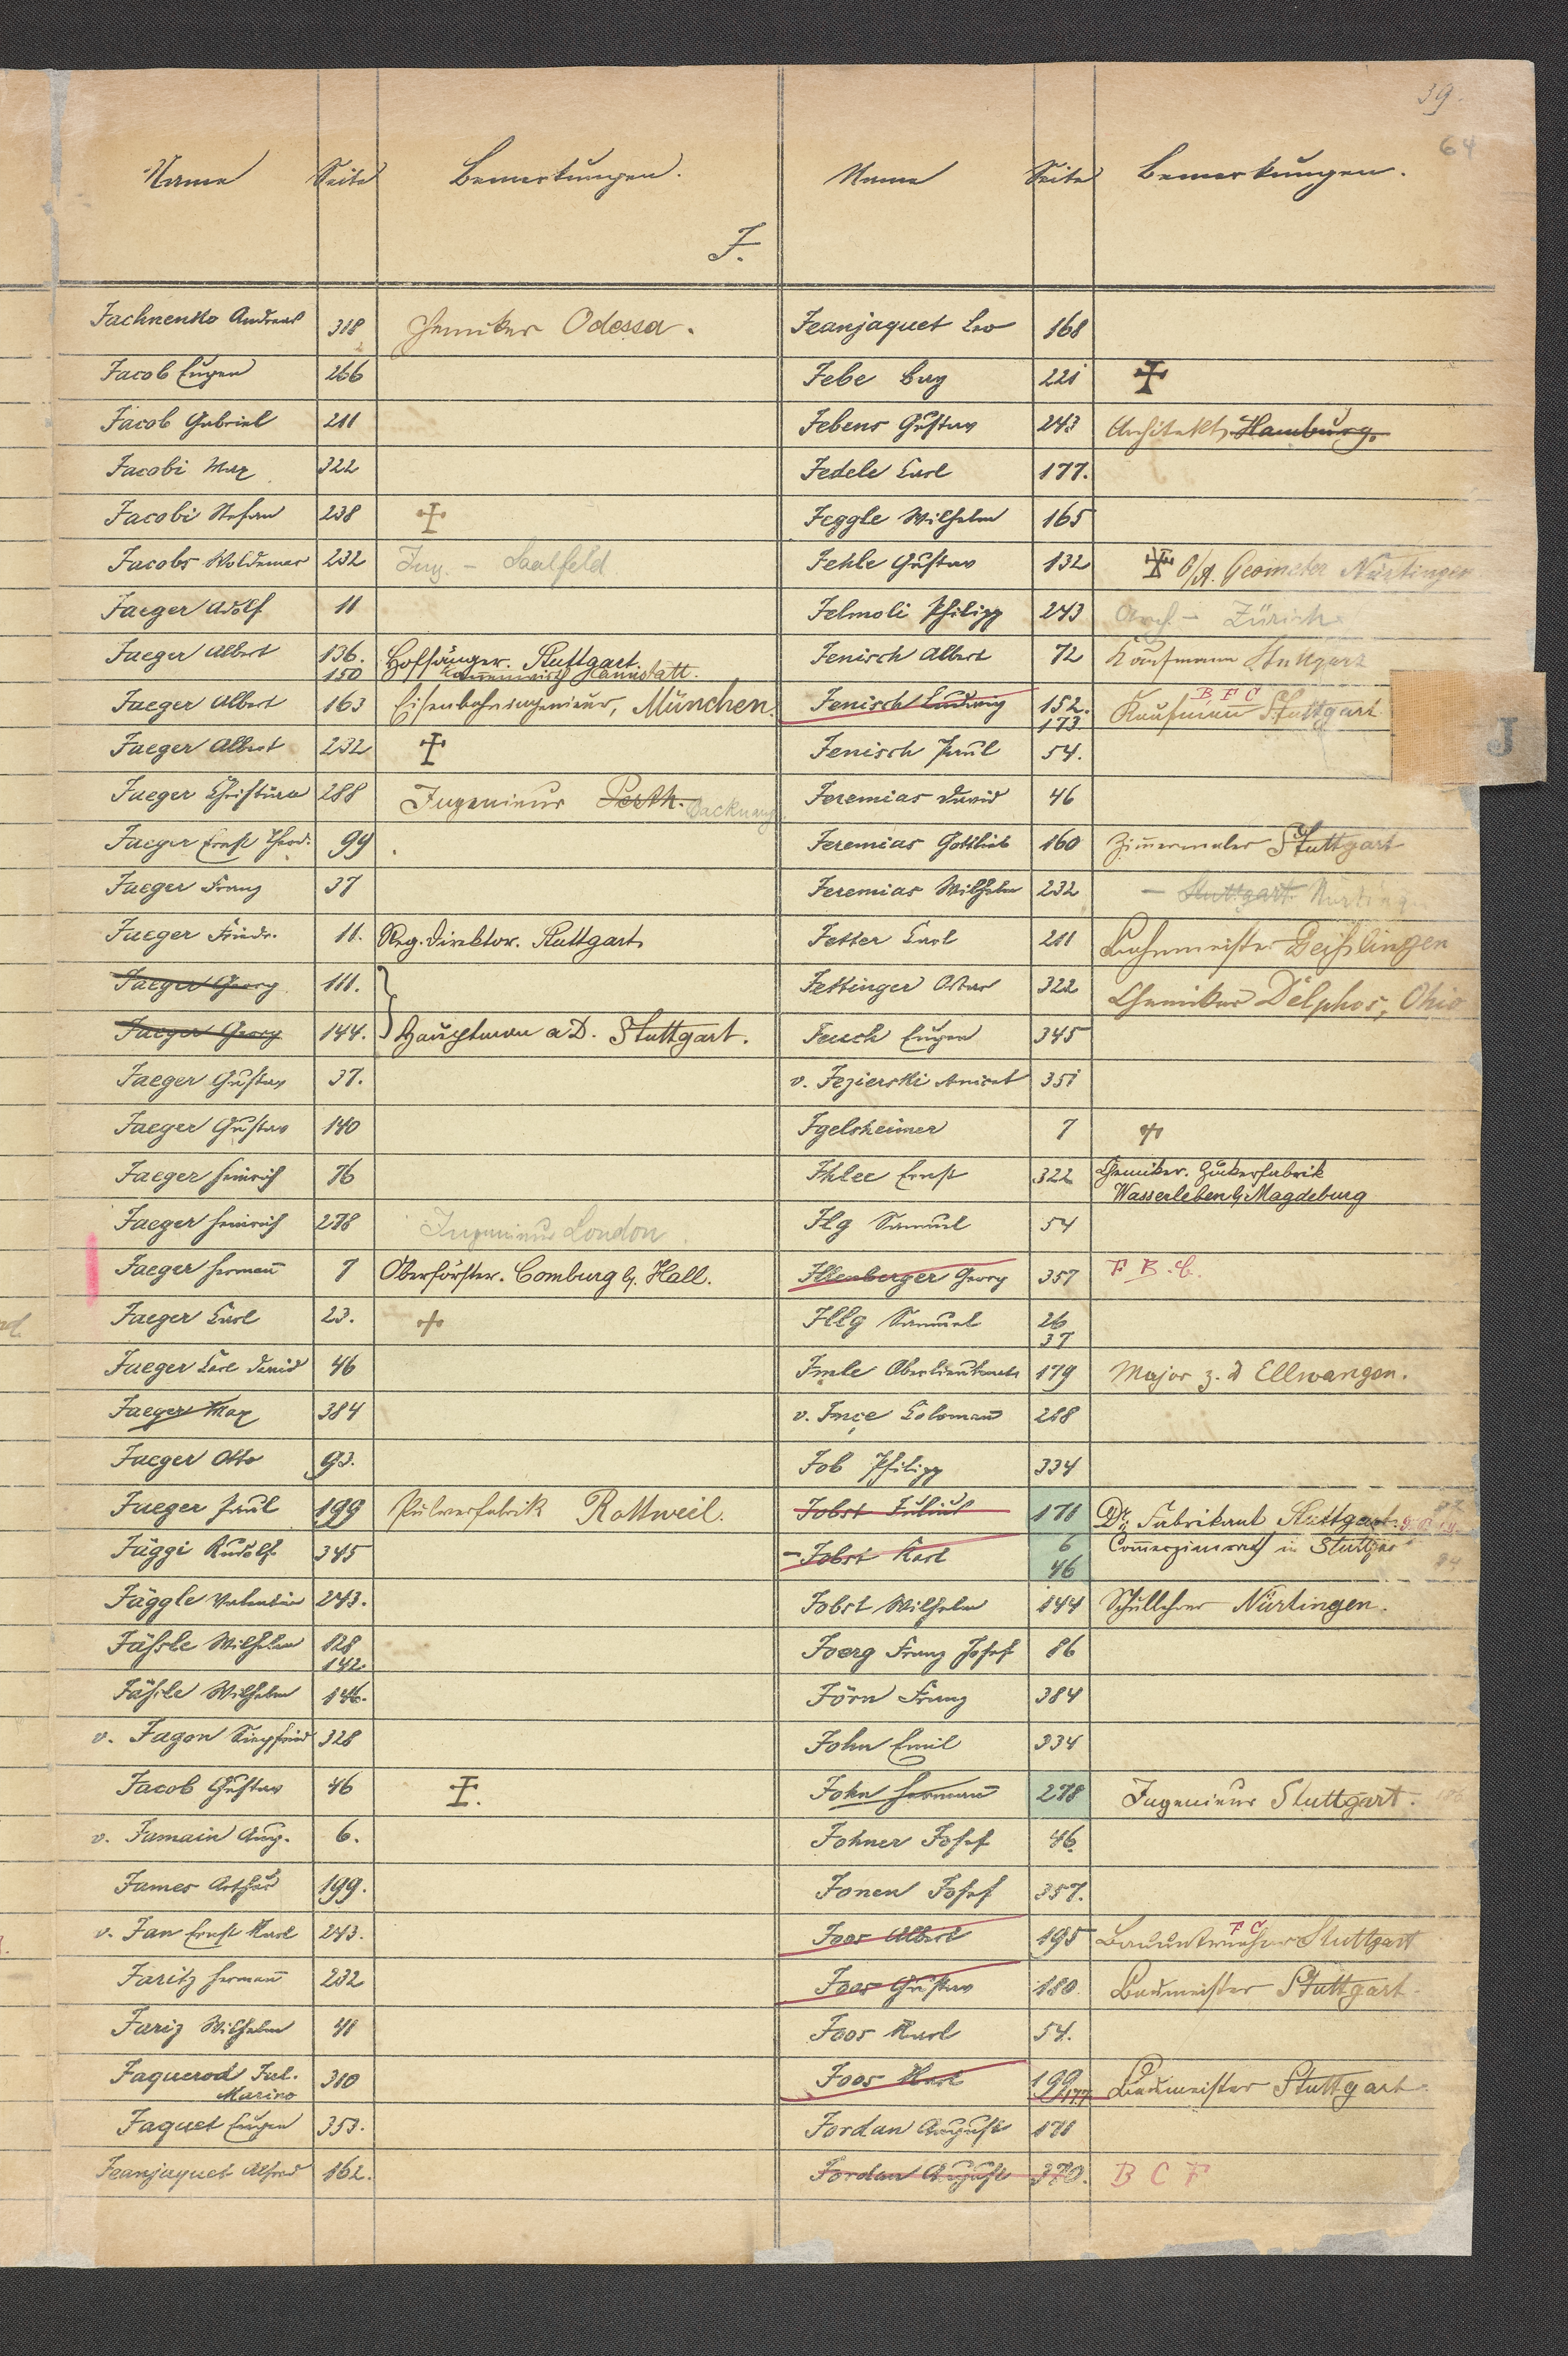 39.
64
Name Seite Bemerkungen. Name Seite Bemerkungen.
J.
Jachnenko Andreas 318 Chemiker Odessa.
Jacob Eugen 266
Jacob Gabriel 211
Jacobi Max 322
Jacobi Stefan 238 ✝
Jacobs Woldemar 232 Ing. - Saalfeld.
Jaeger Adolf 11
Jaeger Albert 136. Hofsänger. Stuttgart.
150 Cannstatt.
Jaeger Albert 163 Eisenbahningenieur, München.
Jaeger Albert 232 ✝
Jaeger Christian 288 Ingenieur Perth. Backnang
Jaeger Ernst Theod. 99
Jaeger Franz 37
Jaeger Friedr. 11. Reg. Direktor. Stuttgart.
Jaeger Georg 111.
Jaeger Georg 144. } Hauptmann a D. Stuttgart.
Jaeger Gustav 37.
Jaeger Gustav 140
Jaeger Heinrich 76
Jaeger Heinrich 278 Ingenieur London.
Jaeger Hermann 7 Oberförster. Comburg b/. Hall.
Jaeger Carl 23. ✝
Jaeger Carl David 46
Jaeger Max 384
Jaeger Otto 93.
Jaeger Paul 199 Pulverfabrik Rottweil.
Jäggi Rudolf 345
Jäggle Valentin 243.
Jässle Wilhelm 128
142.
Jässle Wilhelm 146.
v. Jagon Siegfried 328
Jacob Gustav 46 ✝.
v. Jamain Aug. 6.
James Arthur 199.
v. Jan Ernst Karl 243.
Jaritz Hermann 232
Jariz Wilhelm 41
Jaquerod Jul. 310
Marino
Jaquet Eugen 353.
Jeanjaquet Alfred 162.
Jeanjaquet Leo 168
Jebe Guy 221 ✝
Jebens Gustav 243 Architekt, Hamburg.
Jedele Carl 177.
Jeggle Wilhelm 165
Jehle Gustav 132 ✝ O/A. Geometer Nürtingen
Jelmoli Philipp 243 Arch. - Zürich
Jenisch Albert 72 Kaufmann Stuttgart
Jenisch Ludwig 152. B F C
173. Kaufmann Stuttgart
Jenisch Paul 54.
J
Jeremias David 46
Jeremias Gottlieb 160 Zimmermaler Stuttgart
Jeremias Wilhelm 232 - Stuttgart Nürting
Jetter Carl 211 Bahnmeister Geißlingen
Jettinger Oskar 322 Chemiker Delphos, Ohio
Jeuch Eugen 345
v. Jezierski Anicet 351
Igelsheimer 7 ✝
Ihlee Ernst 322 Chemiker. Zuckerfabrik
Wasserleben b/. Magdeburg
Ilg Samuel 54
Illenberger Georg 357 F B. C.
Illg Samuel 26
37
Imle Oberlieutenant 179 Major z. D Ellwangen.
v. Inçe Coloman 288
Job Philipp 334
Jobst Julius 171 Dr. Fabrikant Stuttgart.
Jobst Karl 6 Commerzienrath in Stuttgar
46
Jobst Wilhelm 144 Schullehrer Nürtingen.
Joerg Franz Josef 86
Jörn Franz 384
John Emil 334
John Hermann 278 Ingenieur Stuttgart.
Johner Josef 46.
Jonen Josef 357.
Joos Albert 195 F C
Bauunternehmer Stuttgart
Joos Gustav 180. Baumeister Stuttgart.
Joos Karl 54.
Joos Karl 199 Baumeister Stuttgart.
177
Jordan August 171
Jordan August 370. B C F